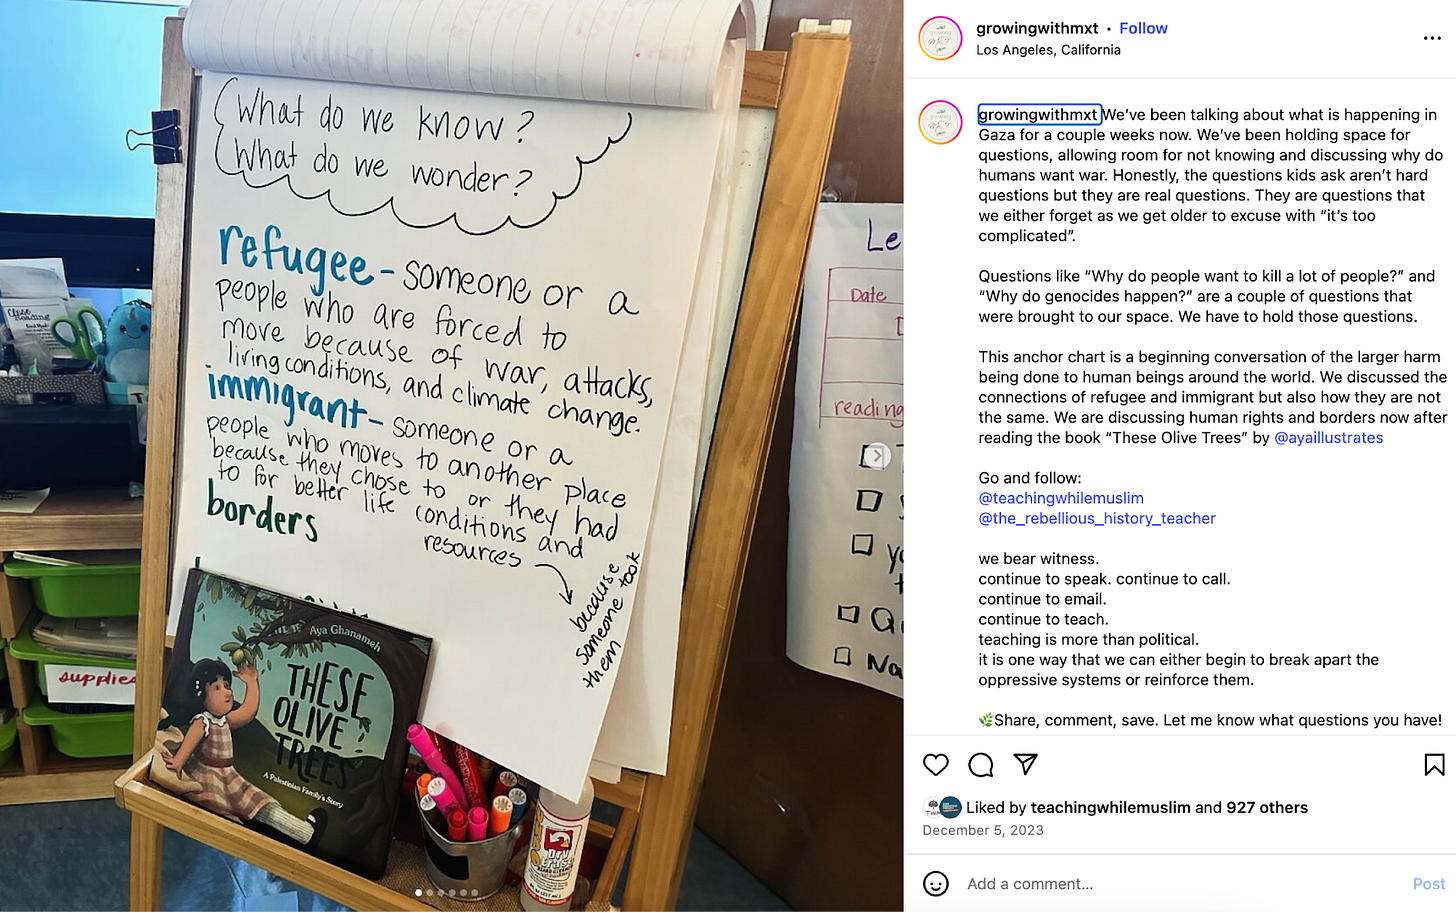 What do we know?
What do we wonder?
refugee - someone or a
people who are forced to
move because of war, attacks,
living conditions, and climate change.
immigrant - someone or a
people who moves to another place
because they chose to or they had
to for better life conditions and
resources
because
someone took
them
borders
Aya Ghanameh
THESE
OLIVE
TREES
A Palestinian Family's Story
Close
Reading
supplies
Dry
Erase
Le
Date
reading
growingwithmxt • Follow
Los Angeles, California
growingwithmxt We've been talking about what is happening in
Gaza for a couple weeks now. We've been holding space for
questions, allowing room for not knowing and discussing why do
humans want war. Honestly, the questions kids ask aren't hard
questions but they are real questions. They are questions that
we either forget as we get older to excuse with “it's too
complicated”.
Questions like “Why do people want to kill a lot of people?” and
“Why do genocides happen?” are a couple of questions that
were brought to our space. We have to hold those questions.
This anchor chart is a beginning conversation of the larger harm
being done to human beings around the world. We discussed the
connections of refugee and immigrant but also how they are not
the same. We are discussing human rights and borders now after
reading the book “These Olive Trees” by @ayaillustrates
Go and follow:
@teachingwhilemuslim
@the_rebellious_history_teacher
we bear witness.
continue to speak. continue to call.
continue to email.
continue to teach.
teaching is more than political.
it is one way that we can either begin to break apart the
oppressive systems or reinforce them.
🌿Share, comment, save. Let me know what questions you have!
Liked by teachingwhilemuslim and 927 others
December 5, 2023
Add a comment...
Post